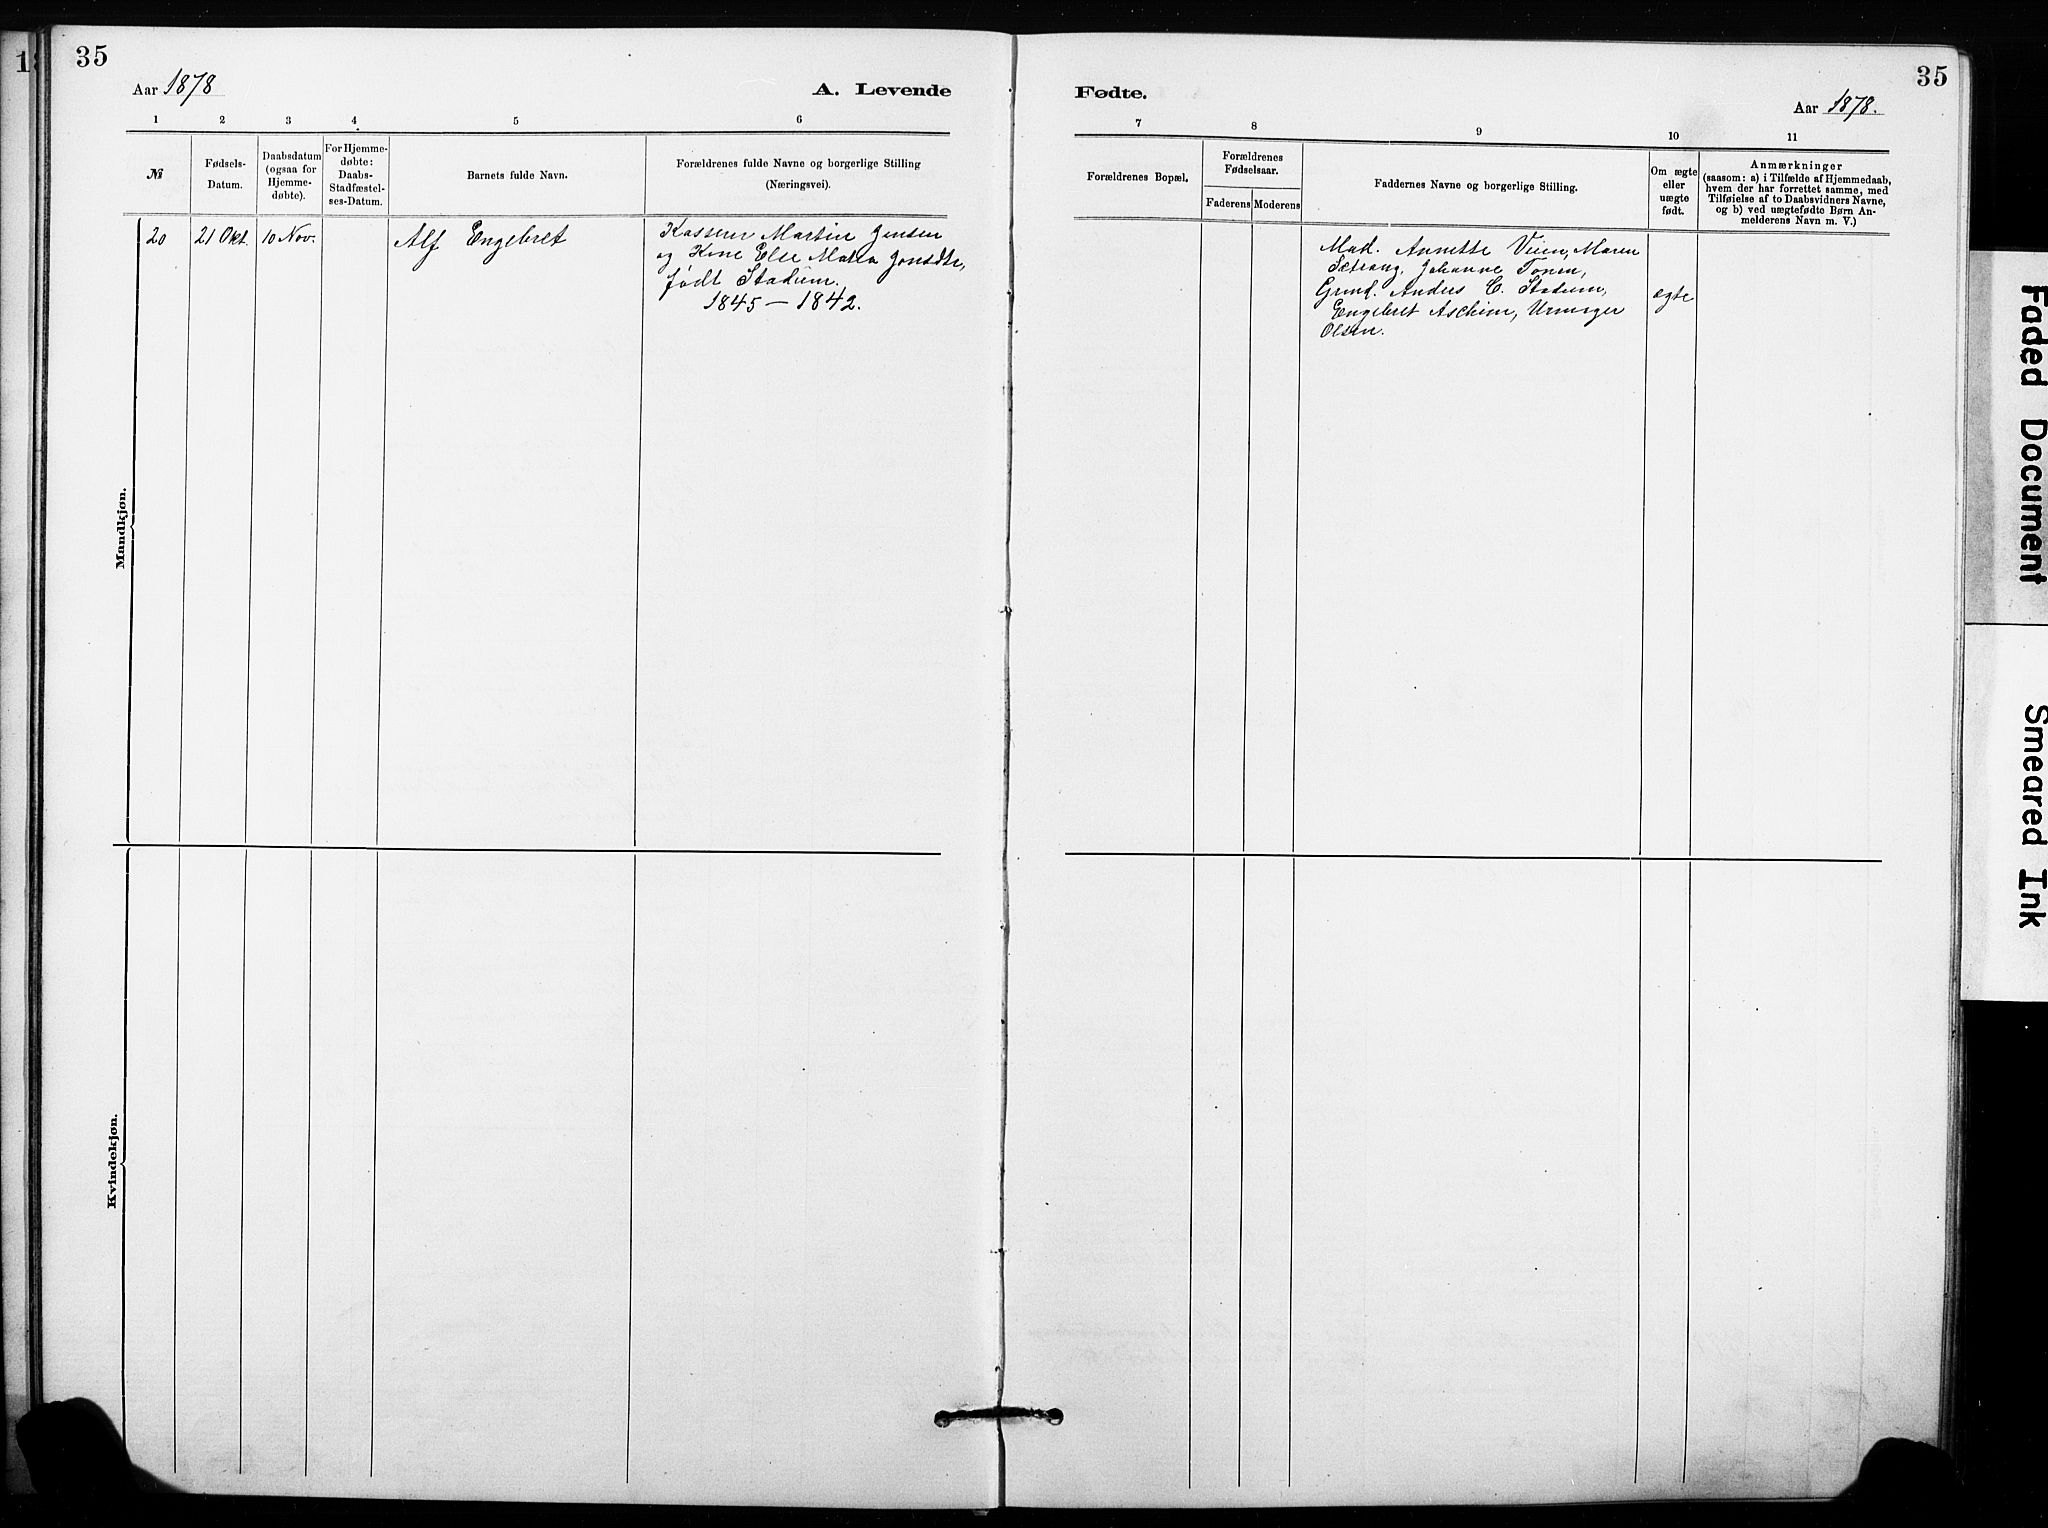 35
Aar 1878
A. Levende
1
2
3
4
5
6
№
Fødsels-
Datum.
Daabsdatum
(ogsaa for
Hjemme-
døbte).
For Hjemme-
døbte:
Daabs-
Stadfæstel-
ses-Datum.
Barnets fulde Navn.
Forældrenes fulde Navne og borgerlige Stilling
(Næringsvei).
Mandkjøn.
20
21 Okt.
10 Nov.
Alf Engebret
Kasserer Martin Jensen
og Kone Else Maria Jonsdtr,
født Stadum.
1845 – 1842.
Kvindekjøn.
35
Fødte.
Aar 1878.
7
8
9
10
11
Forældrenes Bopæl.
Forældrenes
Fødselsaar.
Faderens
Moderens
Faddernes Navne og borgerlige Stilling.
Om ægte
eller
uægte
født.
Anmærkninger
(saasom: a) i Tilfælde af Hjemmedaab,
hvem der har forrettet samme, med
Tilføielse af to Daabsvidners Navne,
og b) ved uægtefødte Børn An-
melderens Navn m. V.)
Mad. Annette Veien, Maren
Sætrang, Johanne Tonen,
Grmd. Anders C. Stadum,
Engebret Aschim, Urmager
Olsen.
ægte
Faded Document
Smeared Ink